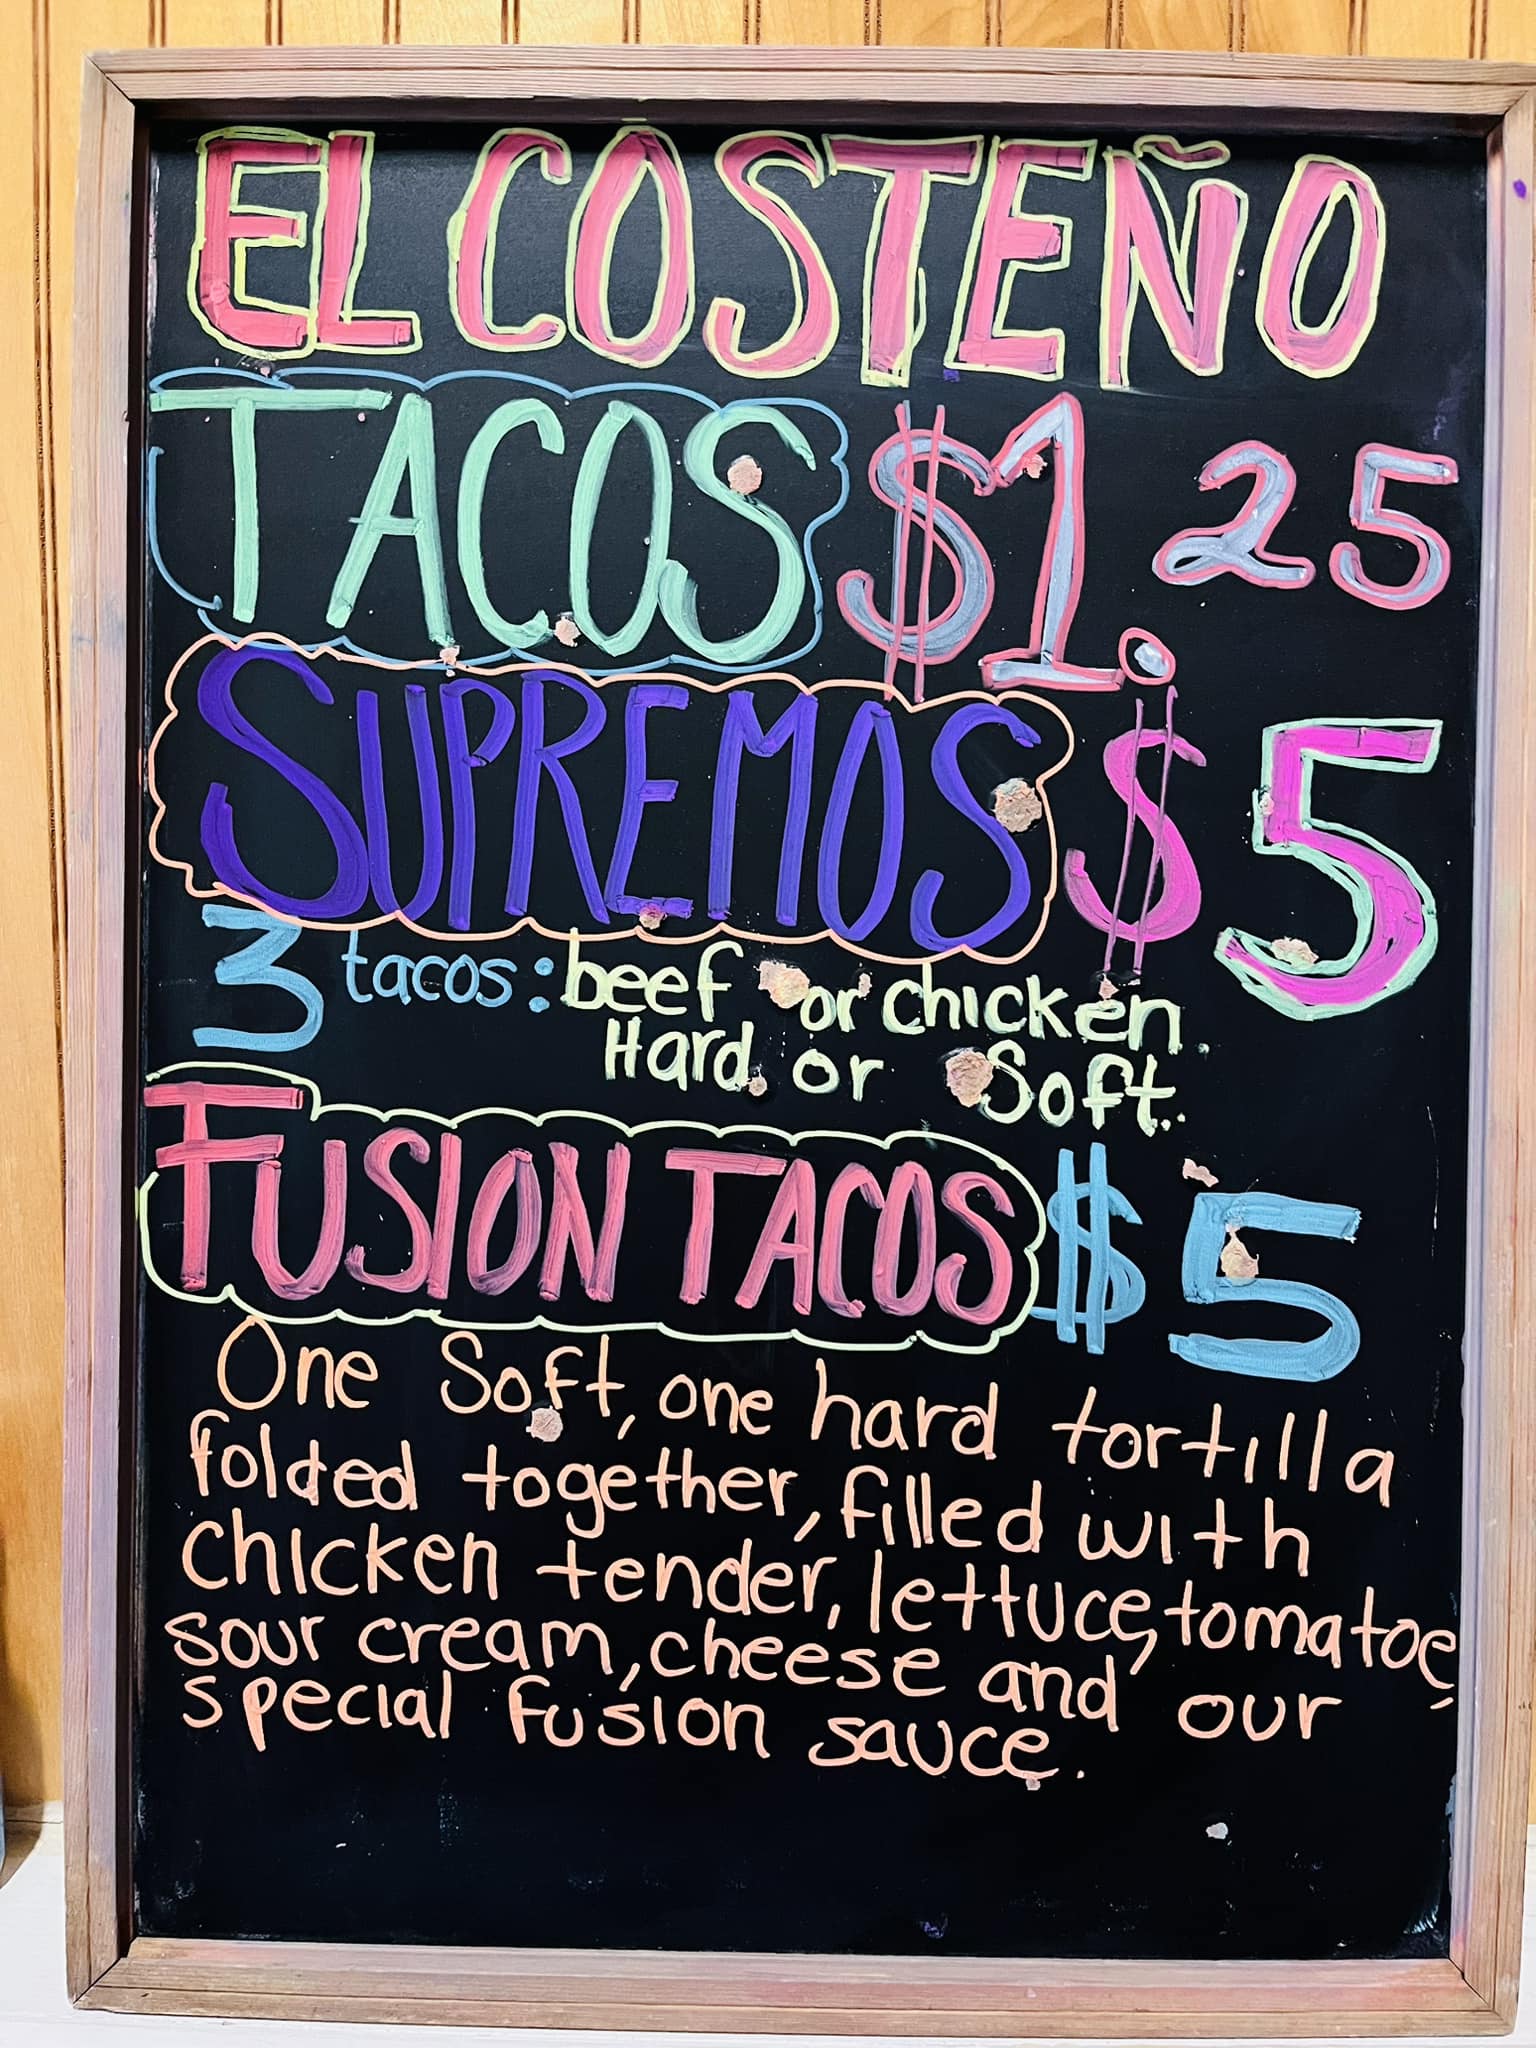 EL COSTEÑO
TACOS $1.25
SUPREMOS $5
3 tacos: beef or chicken.
Hard or Soft.
FUSION TACOS $5
One Soft, one hard tortilla
folded together, filled with
chicken tender, lettuce, tomatoe,
sour cream, cheese and our
special fusion sauce.